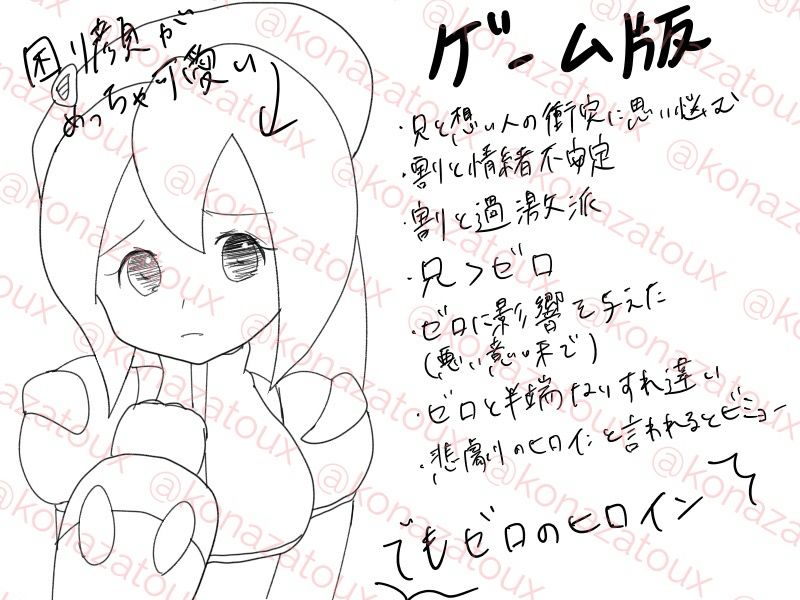 困り顔が
めっちゃ可愛い
ゲーム版
・兄と想い人の衝突に思い悩む
・割と情緒不安定
・割と過激派
・兄＞ゼロ
・ゼロに影響を与えた
(悪い意味で)
・ゼロと半端ないすれ違い
・悲劇のヒロインと言われるとビミョー
でもゼロのヒロイン
@konazatoux